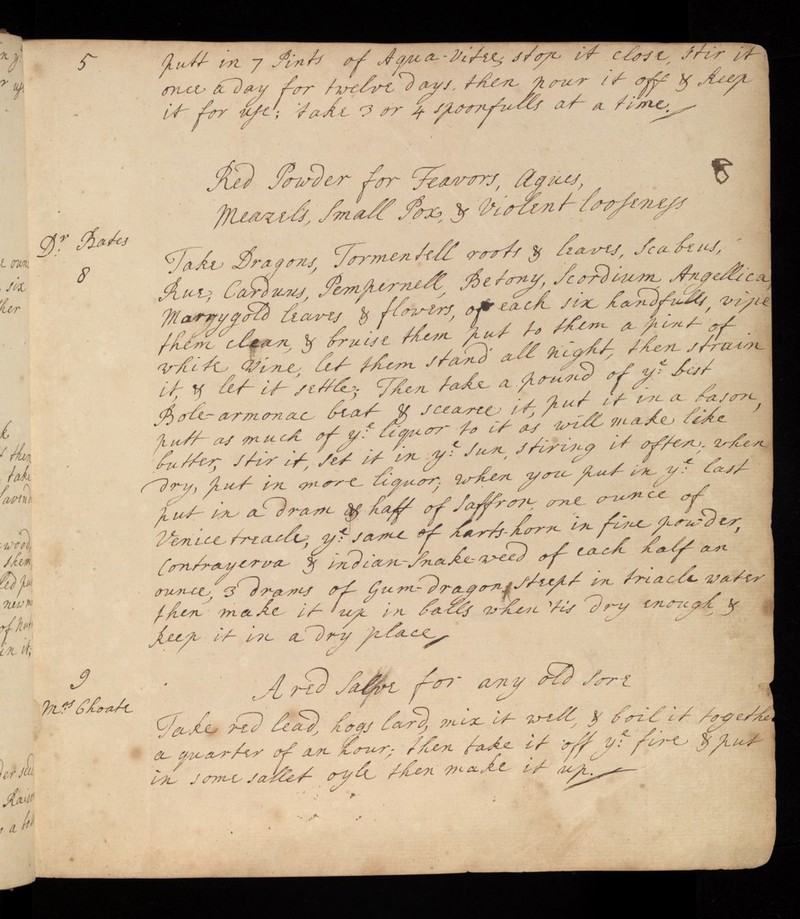 5
putt in 7 Pints of Aqua-Vitee, stop it close, Stir it
once a day for twelve days. then pour it off & Keep
it for use; take 3 or 4 spoonfulls at a time.
8
Red Powder for Feavors, Agues,
Meazels, Small Pox, & Violent loosness
Dr Bates
8
Take Dragons, Tormentell roots & leaves, Scabeus,
Rue, Carduus, Pempernell, Betony, Scordium Angellica,
Marrygold leaves & flowers, of each six handfulls, vipe
them clean, & bruise them put to them a pint of
white Wine, let them stand all night, then strain
it, & let it settle; Then take a pound of ye bist
Bole-armonac beat & scearce it, put it in a bason,
putt as much of ye liquor to it as will make like
butter, stir it, set it in ye Sun, stiring it often; when
dry, put in more liquor; when you put in ye last
put in a dram & half of Saffron, one ounce of
Venice treacle, ye same of harts-horn in fine powder,
Contrayerva & indian-Snake-weed of each half an
ounce, 3 drams of Gum-dragon steept in triacle water
then make it up in balls when 'tis dry enough &
Keep it in a dry place
9
Mrs Choate
A red Salve for any old Sore
Take red lead, hogs lard, mix it well, & boil it together
a quarter of an hour; then take it off ye fire & put
in some sallet oyle then make it up.